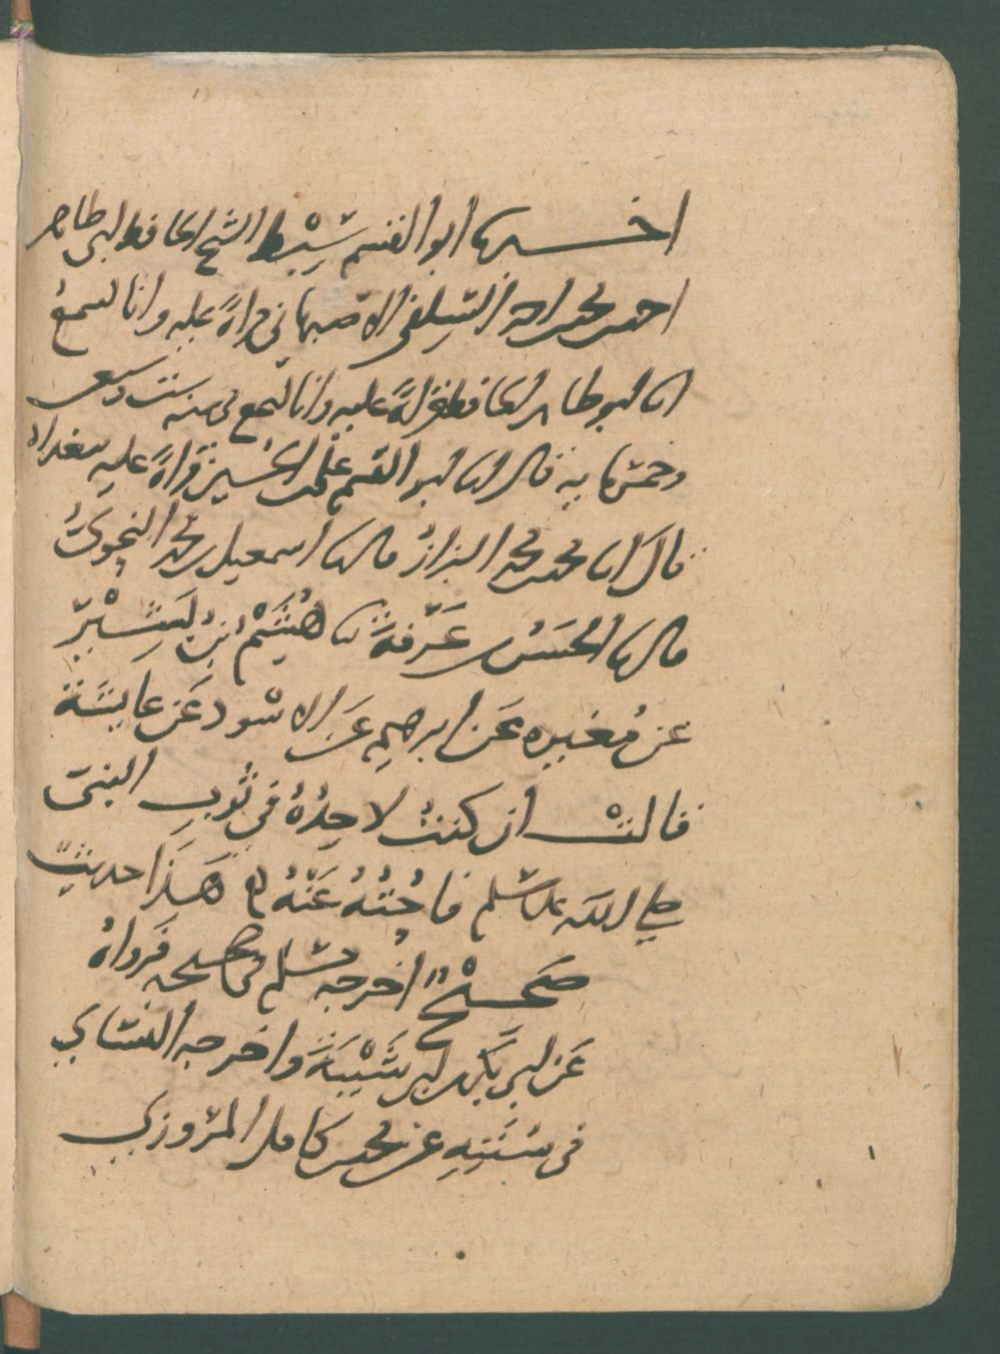 اخبرنا ابو القسم سبط الشيخ الحافظ ابي طاهر
احمد بن محمد بن احمد السلفي الاصبهاني قراةً عليه وانا اسمع
انا ابو طاهر الحافظ قراةً عليه وانا اسمع في سنه ست وسبعين
وخمسمايه قال انا ابو القسم علي بن الحسين قراةً عليه ببغداد
قال انا محمد بن محمد البزاز قال ثنا اسمعيل بن محمد النحوي
قال ثنا الحسن بن عرفة ثنا هشيم بن بشير
عن مغيره عن ابرهيم عن الاسود عن عايشة
قالت ان كنت لاجده في ثوب النبي
صلى الله عليه وسلم فاحته عنه هذا حديث
صحيح اخرجه مسلم في صحيحه فرواه
عن ابي بكر بن ابي شيبة واخرجه النساي
في سننه عن محمد بن كامل المروزي